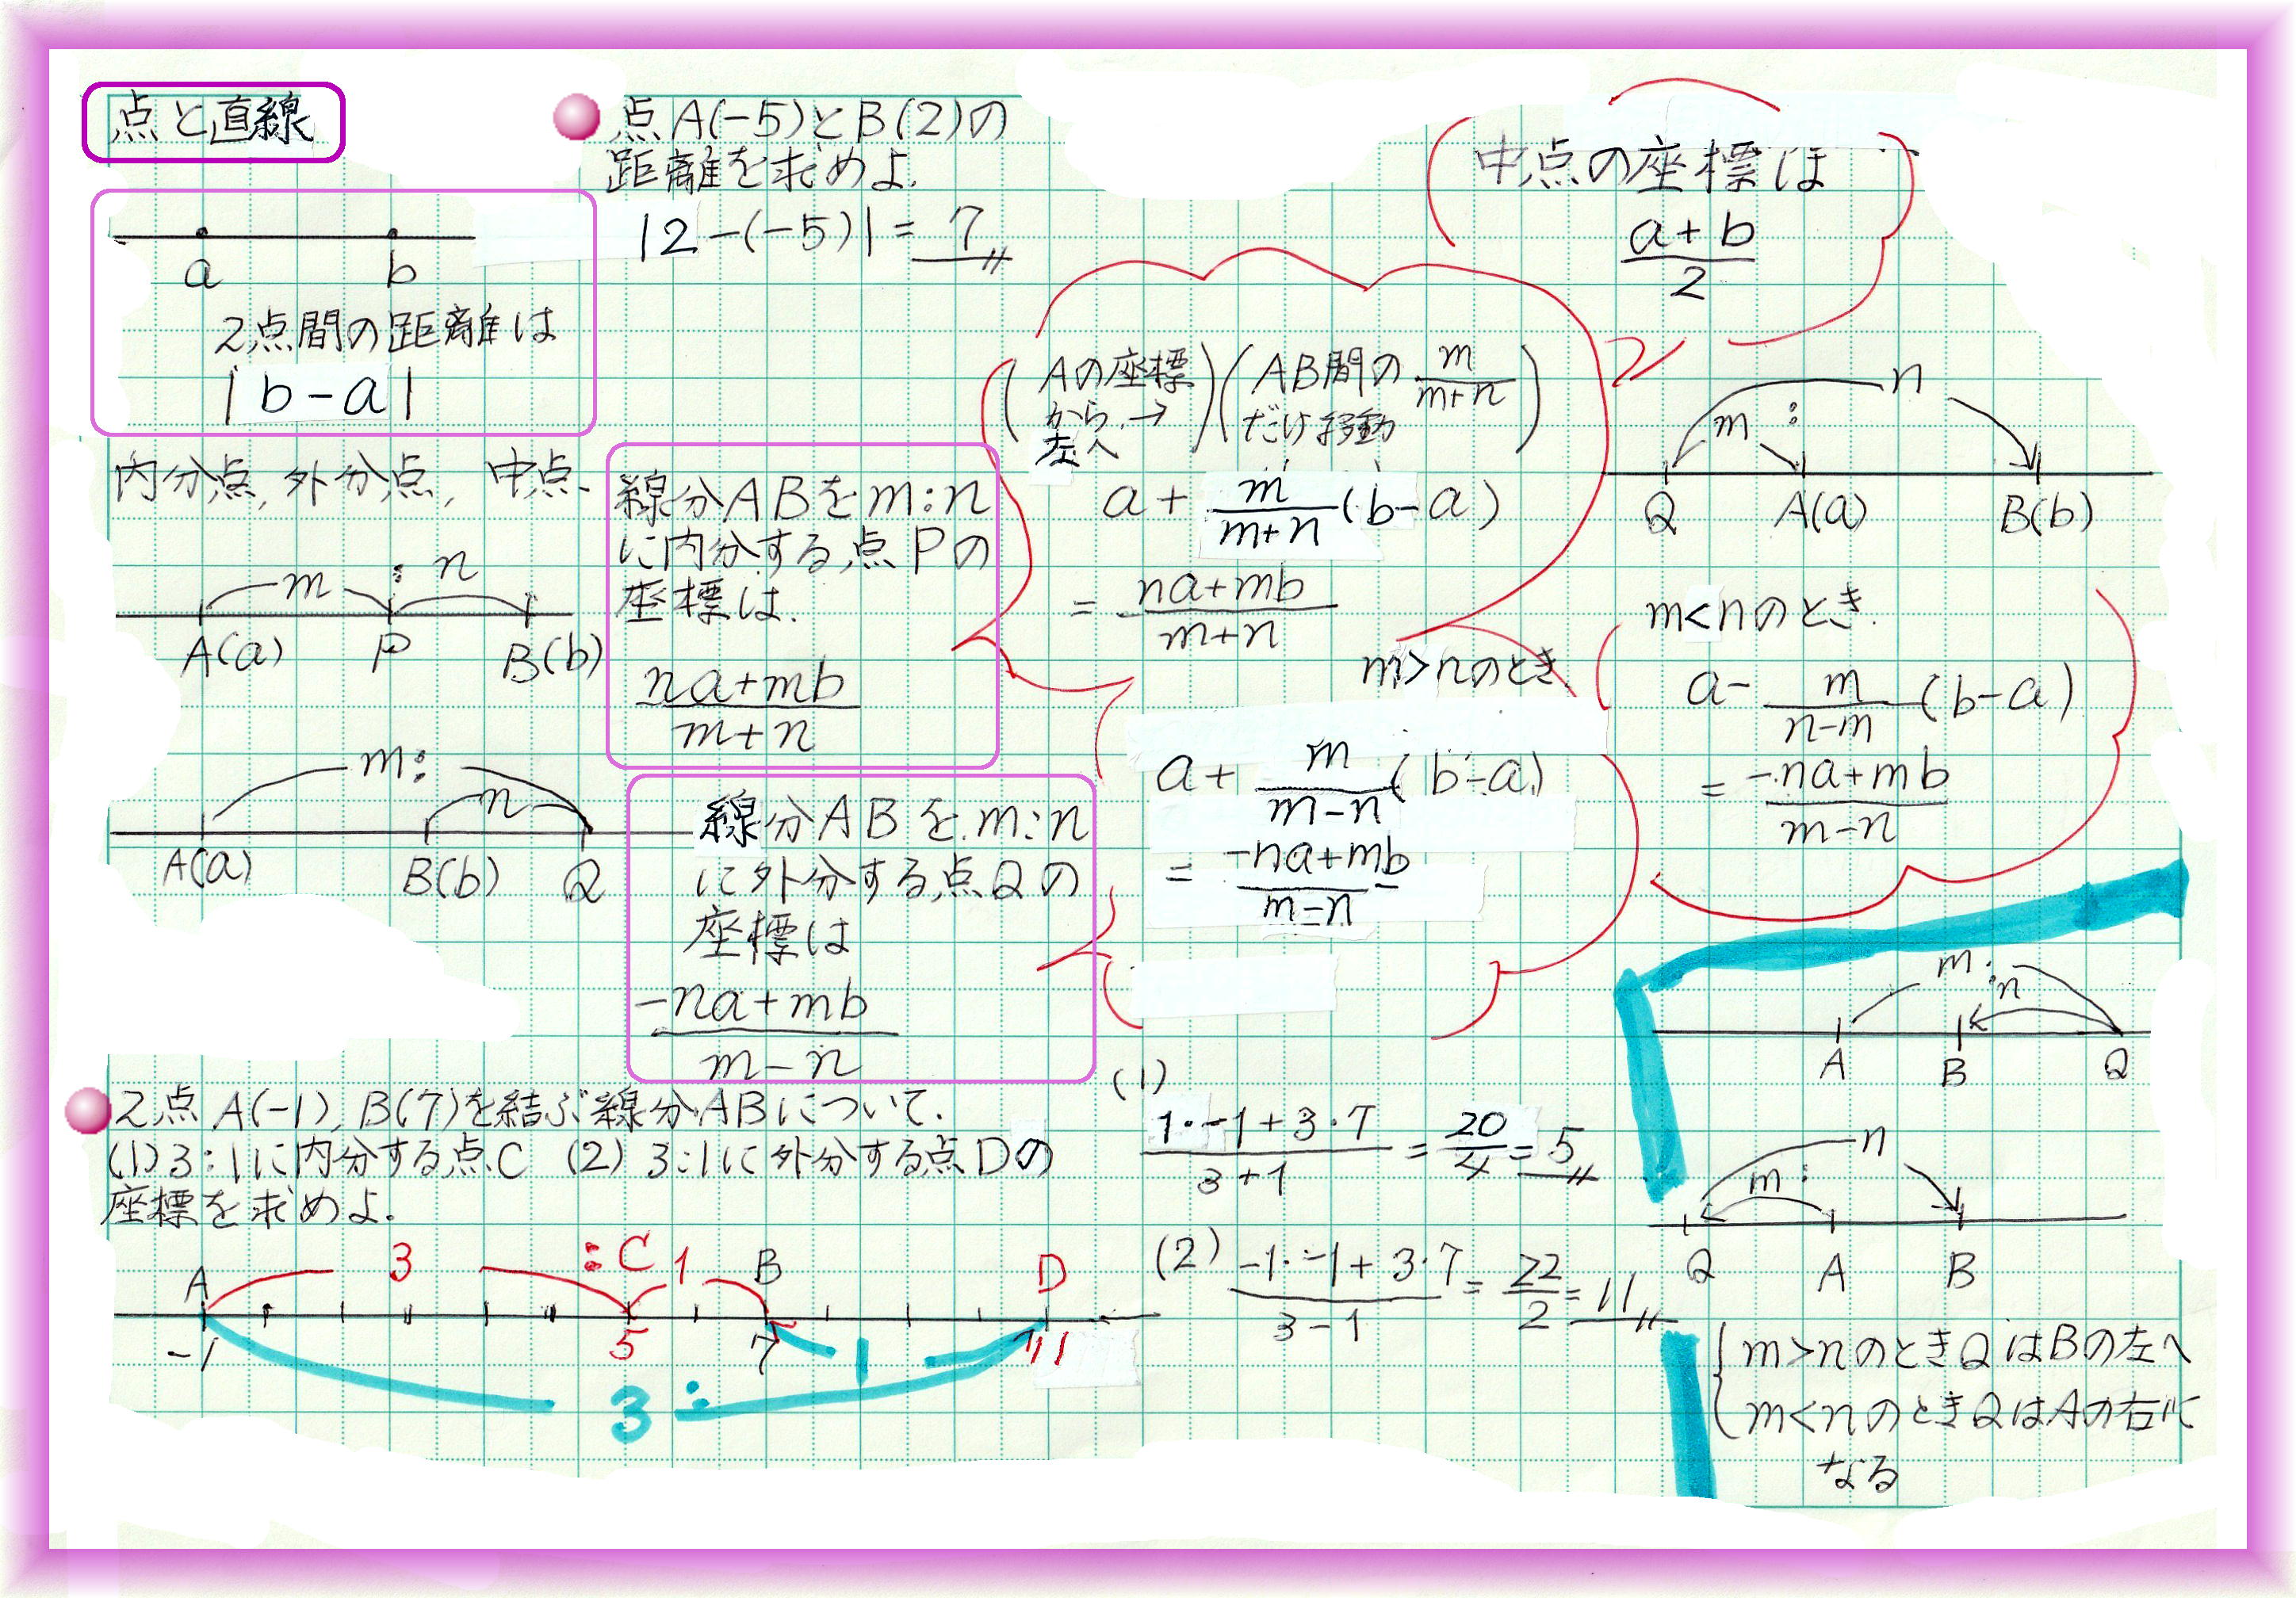 点と直線
a b
2点間の距離は
|b-a|
点A(-5)とB(2)の
距離を求めよ.
|2-(-5)|=7
中点の座標は
a+b
2
内分点, 外分点, 中点.
m : n
A(a) P B(b)
線分ABをm:n
に内分する点Pの
座標は.
na+mb
m+n
(Aの座標から→左へ)(AB間の m/m+n だけ移動)
a+ m/m+n (b-a)
= na+mb/m+n
m : n
Q A(a) B(b)
m<nのとき.
a- m/n-m (b-a)
= -na+mb/m-n
m>nのとき.
a+ m/m-n (b-a)
= -na+mb/m-n
m: n
A(a) B(b) Q
線分ABをm:n
に外分する点Qの
座標は
-na+mb
m-n
m: n
A B Q
m: n
Q A B
m>nのときQはBの左へ
m<nのときQはAの右に
なる
2点A(-1), B(7)を結ぶ線分ABについて.
(1)3:1に内分する点C (2)3:1に外分する点Dの
座標を求めよ.
A 3 :C 1 B D
-1 5 7 11
3: 1
(1)
1・-1+3・7/3+1 = 20/4 = 5
(2) -1・-1+3・7/3-1 = 22/2 = 11